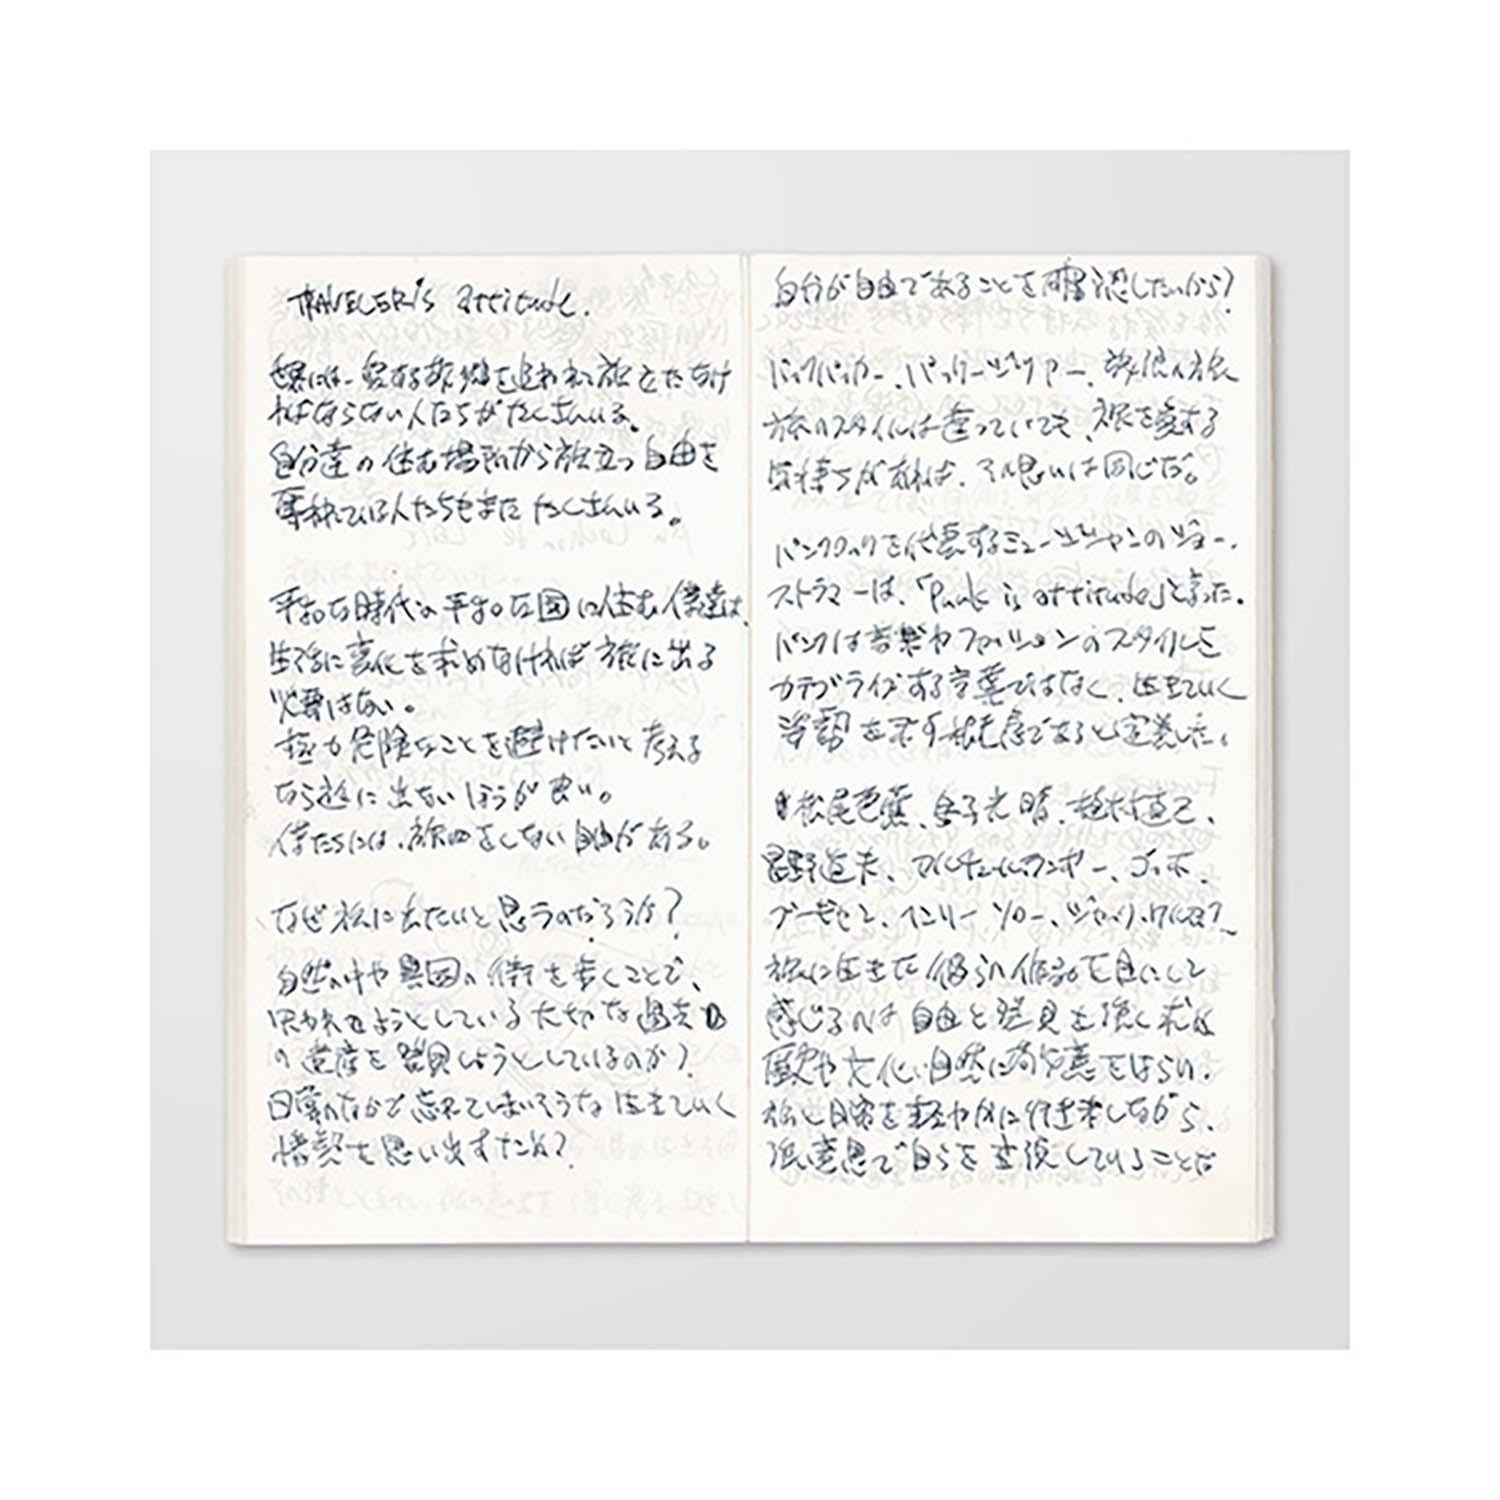 TRAVELER's attitude.
世界には、愛する故郷を追われて旅立たなけ
ればならない人たちがたくさんいる。
自分達の住む場所から旅立つ自由を
奪われている人たちもまたたくさんいる。
平和な時代の平和な国に住む僕達は、
生活に変化を求めなければ旅に出る
必要はない。
極力危険なことを避けたいと考える
なら旅に出ないほうが良い。
僕たちには、旅をしない自由がある。
なぜ旅に出たいと思うのだろうか?
自然の中や異国の街を歩くことで、
失われようとしている大切な過去
の遺産を発見しようとしているのか?
日常のなかで忘れてしまいそうな生きていく
情熱を思い出すため?
自分が自由であることを確認したいから?
バックパッカー、パッケージツアー、放浪の旅
旅のスタイルは違っていても、旅を愛する
気持ちがあれば、その思いは同じだ。
パンクロックを代表するミュージシャンのジョー・
ストラマーは、「Punk is attitude」と言った。
パンクは音楽やファッションのスタイルを
カテゴライズする言葉ではなく、生きていく
姿勢を示す態度であると定義した。
松尾芭蕉、金子光晴、植村直己、
星野道夫、アルチュール・ランボー、ゴッホ、
ゴーギャン、ヘンリー・ソロー、ジャック・
旅に生きた彼らの作品を目にして
感じるのは自由と発見を強く求め
歴史や文化、自然に敬意をはらい、
旅と日常を軽やかに行き来しながら、
強い意思で自らを表現していることだ